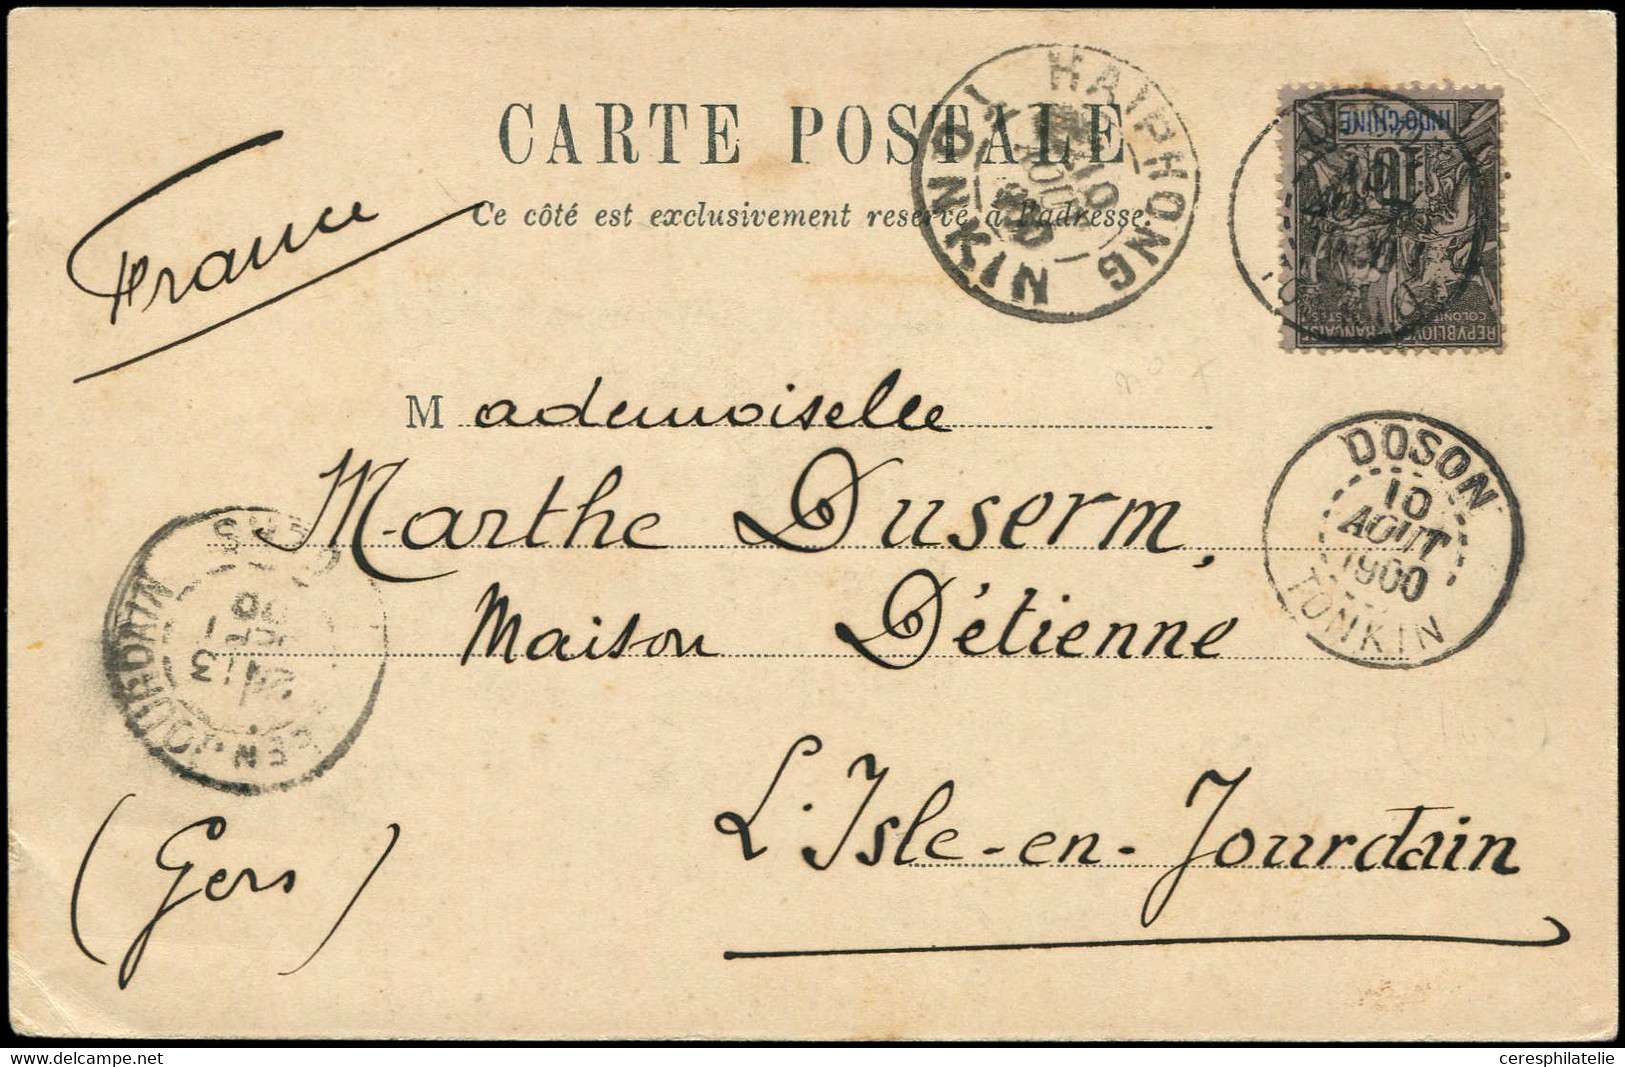 CARTE POSTALE
Ce côté est exclusivement reservé à l'adresse.
France
HAIPHONG
10
AOUT
TONKIN
INDO-CHINE
10
REPVBLIQVE FRANÇAISE
COLONIES POSTES
Mademoiselle
Marthe Duserm,
Maison Détienne
L'Isle-en-Jourdain
(Gers)
DOSON
10
AOUT
1900
TONKIN
EN-JOURDAIN
GERS
24
ceresphilatelie